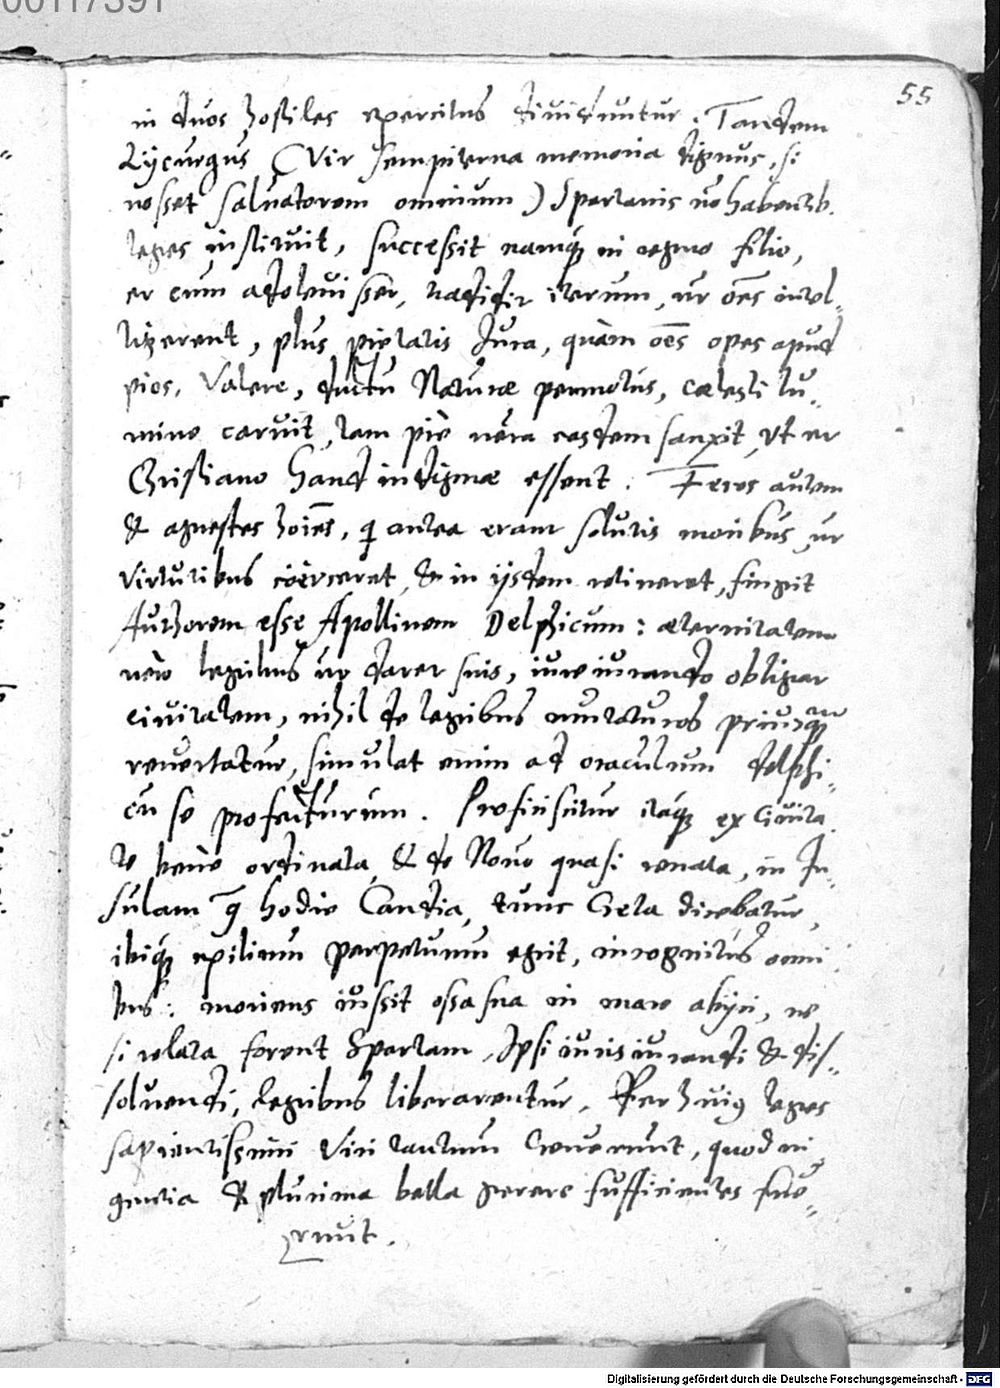 00117391
55
in duos hostiles exercitus diuiduntur. Tandem
Lijcurgus (Vir sempiterna memoria dignus, si
nosset saluatorem omnium) Spartanis nõ habentib.
leges instituit, successit namq́ue in regno filio,
et cum adoleuisset, reddidit iterum, ut oẽs intel-
ligerent, plus pietatis Iura, quàm oẽs opes apud
pios, Valere, ductu Naturæ permotus, cœlesti lu-
mine caruit, tam piè uerà easdem sanxit, Vt et
Christiano haud indignæ essent. Feros autem
& agrestes hoĩes, qi antea erant solutis moribus, ut
Virtutibus coërceret, & in ijsdem retineret, fingit
Authorem esse Apollinem Delphicum: æternitatem
uerò legibus ut daret suis, iureiurando obligat
ciuitatem, nihil de legibus mutaturos priusquàm
reuertatur, simulat enim ad oraculum delphi-
cũ se profecturum. Proficiscitur itaq́ue ex Ciuita
te benè ordinata, & de Nouo quasi renata, in In-
sulam q̃ hodie Candia, tunc Creta dicebatur,
ibiq́ue exilium perpetuum egit, incognitus omni
bus: moriens iussit ossa sua in mare abijci, ne
si relata forent Spartam, Ipsi iurisiurandi & dis-
soluendi, legibus liberarentur. Per huig leges
sapientissimi Viri tantum creuerunt, quod in
gentia & plurima bella gerere sufficientes fue-
runt.
Digitalisierung gefördert durch die Deutsche Forschungsgemeinschaft - DFG